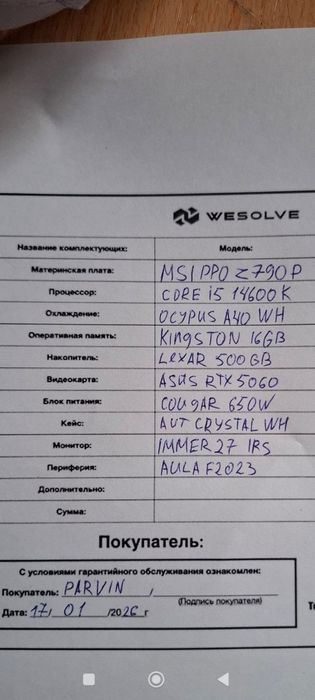 WESOLVE
Название комплектующих: Модель:
Материнская плата: MSI PPO Z790P
Процессор: CORE i5 14600K
Охлаждение: OCYPUS A40 WH
Оперативная память: KINGSTON 16GB
Накопитель: LEXAR 500GB
Видеокарта: ASUS RTX 5060
Блок питания: COUGAR 650W
Кейс: AVT CRYSTAL WH
Монитор: IMMER 27 IPS
Периферия: AULA F2023
Дополнительно:
Сумма:
Покупатель:
С условиями гарантийного обслуживания ознакомлен:
Покупатель: PARVIN ,
(Подпись покупателя)
Дата: 17/ 01 /2026 г